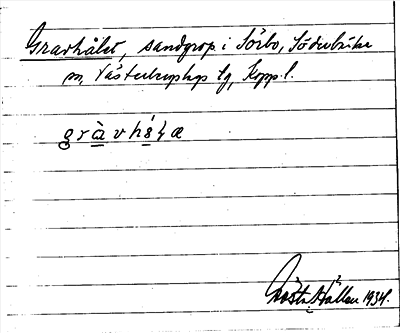 Gravhålet, sandgrop i Sörbo, Söderbärke
sn, Västerbergslags fg, Kopp. l.
gràvhålæ
Gösta Hållen 1934.